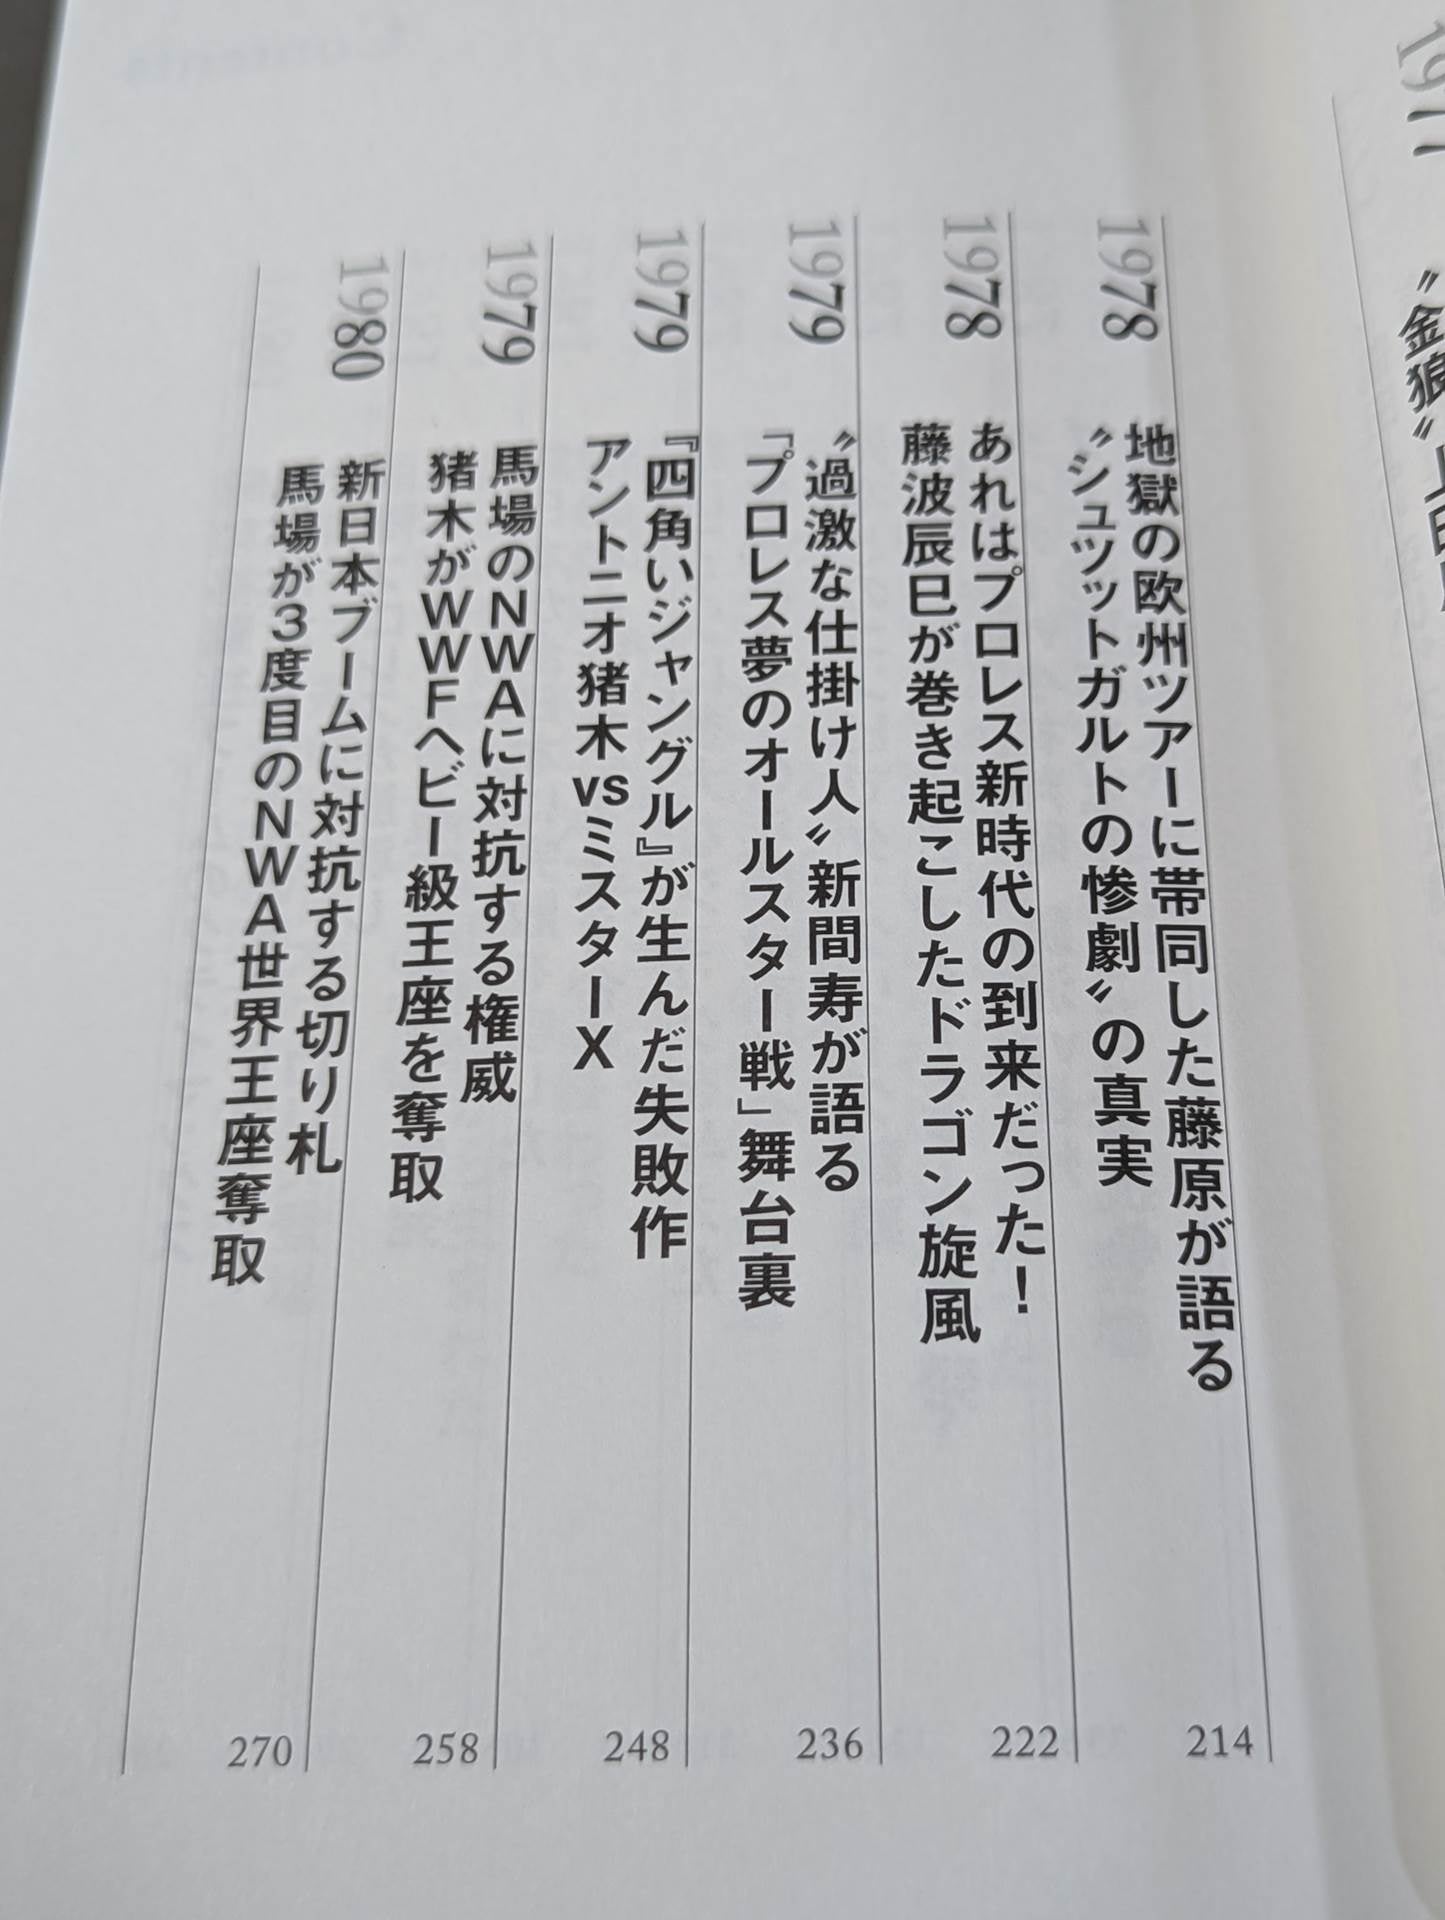 1978
地獄の欧州ツアーに帯同した藤原が語る
〝シュツットガルトの惨劇〟の真実
214
1978
あれはプロレス新時代の到来だった！
藤波辰巳が巻き起こしたドラゴン旋風
222
1979
〝過激な仕掛け人〟新間寿が語る
「プロレス夢のオールスター戦」舞台裏
236
1979
『四角いジャングル』が生んだ失敗作
アントニオ猪木vsミスターX
248
1979
馬場のNWAに対抗する権威
猪木がWWFヘビー級王座を奪取
258
1980
新日本ブームに対抗する切り札
馬場が3度目のNWA世界王座奪取
270